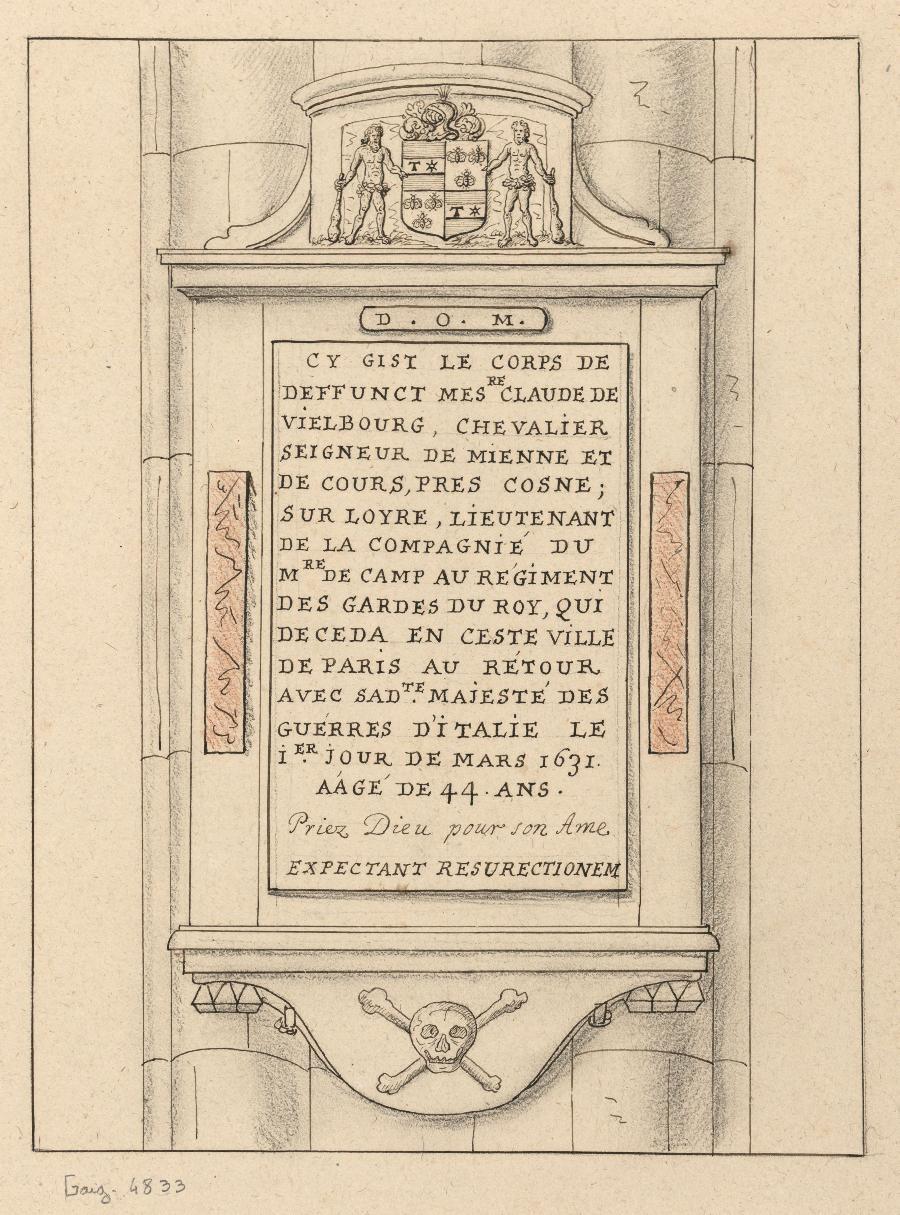 D . O . M .
CY GIST LE CORPS DE
DEFFUNCT MES^RE CLAUDE DE
VIELBOURG, CHEVALIER
SEIGNEUR DE MIENNE ET
DE COURS, PRES COSNE;
SUR LOYRE, LIEUTENANT
DE LA COMPAGNIÉ DU
M^RE DE CAMP AU RÉGIMENT
DES GARDES DU ROY, QUI
DECEDA EN CESTE VILLE
DE PARIS AU RÉTOUR
AVEC SAD^TE. MAJESTÉ DES
GUÉRRES D'ITALIE LE
i^ER. JOUR DE MARS 1631.
AÁGÉ DE 44. ANS.
Priez Dieu pour son Ame
EXPECTANT RESURECTIONEM
T
T
Gaig. 4833